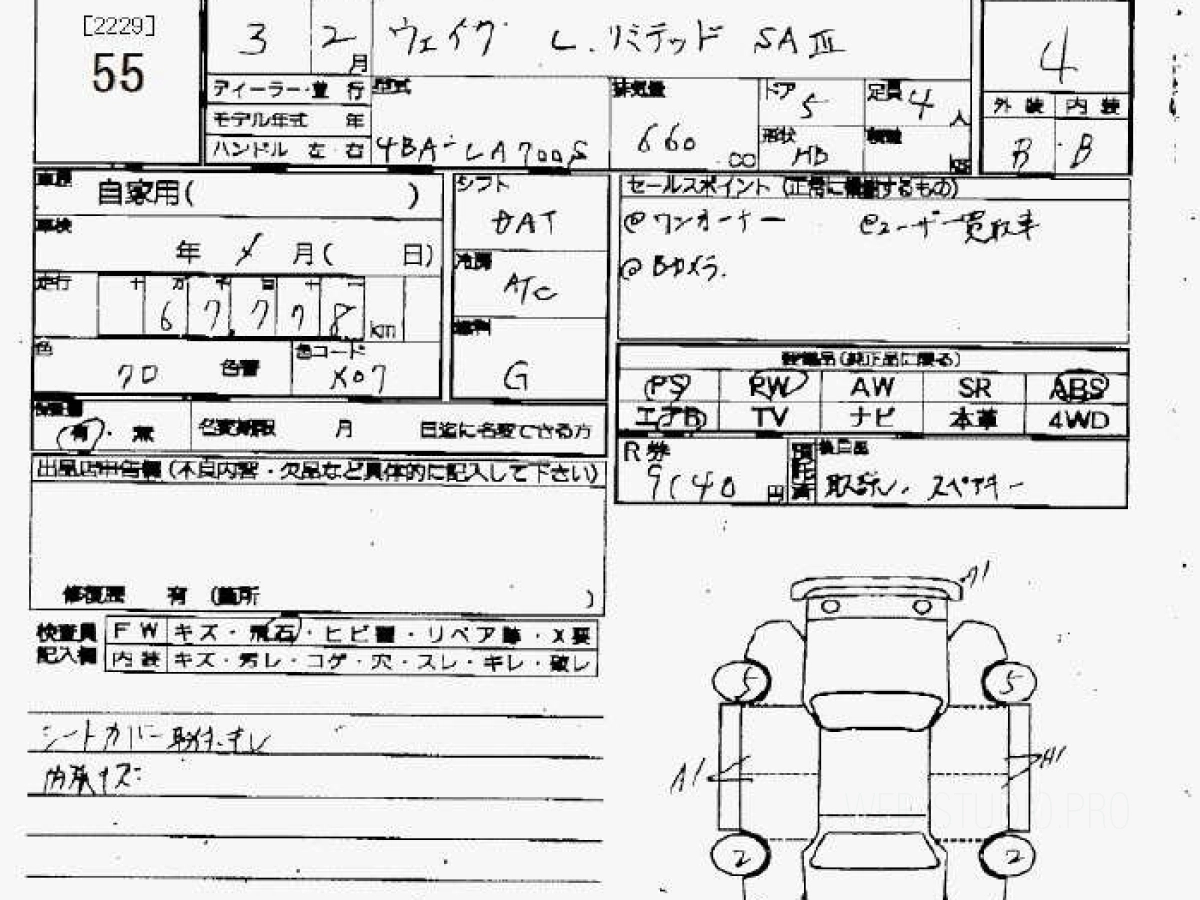 [2229]
55
3 2月 ウェイク L.リミテッド SAⅢ 4
ディーラー・並 行 型式 排気量 ドア 5 定員 4人
モデル年式 年 外装 内装
ハンドル 左 右 4BA-LA700S 660 CC 形状 HB 積載 B B
車歴 自家用( )
シフト DAT
セールスポイント (正常に機能するもの)
@ワンオーナー @ユーザー買取車
@Bカメラ.
車検 年 月( 日)
冷房 A/C
走行 十 万 千 百 十 一
6 7,7 7 8 km
燃料 G
色 クロ 色替 色コード X07
装備品(純正品に限る)
PS PW AW SR ABS
エアB TV ナビ 本革 4WD
保証書 有・無 名変期限 月 日迄に名変できる方
R券 9140円 預託済 後日品 取説、スペアキー
出品店申告欄(不良内容・欠品など具体的に記入して下さい)
修復歴 有 (箇所 )
検査員 FW キズ・飛石・ヒビ・リペア跡・X要
記入欄 内装 キズ・汚レ・コゲ・穴・スレ・キレ・破レ
シートカバー取付.キレ
内張キズ
A1
5 5
A1 A1
2 2
WEB STUDIO.PRO